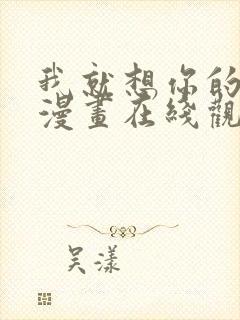 我就想你的
漫畫在綫觀
吴漾